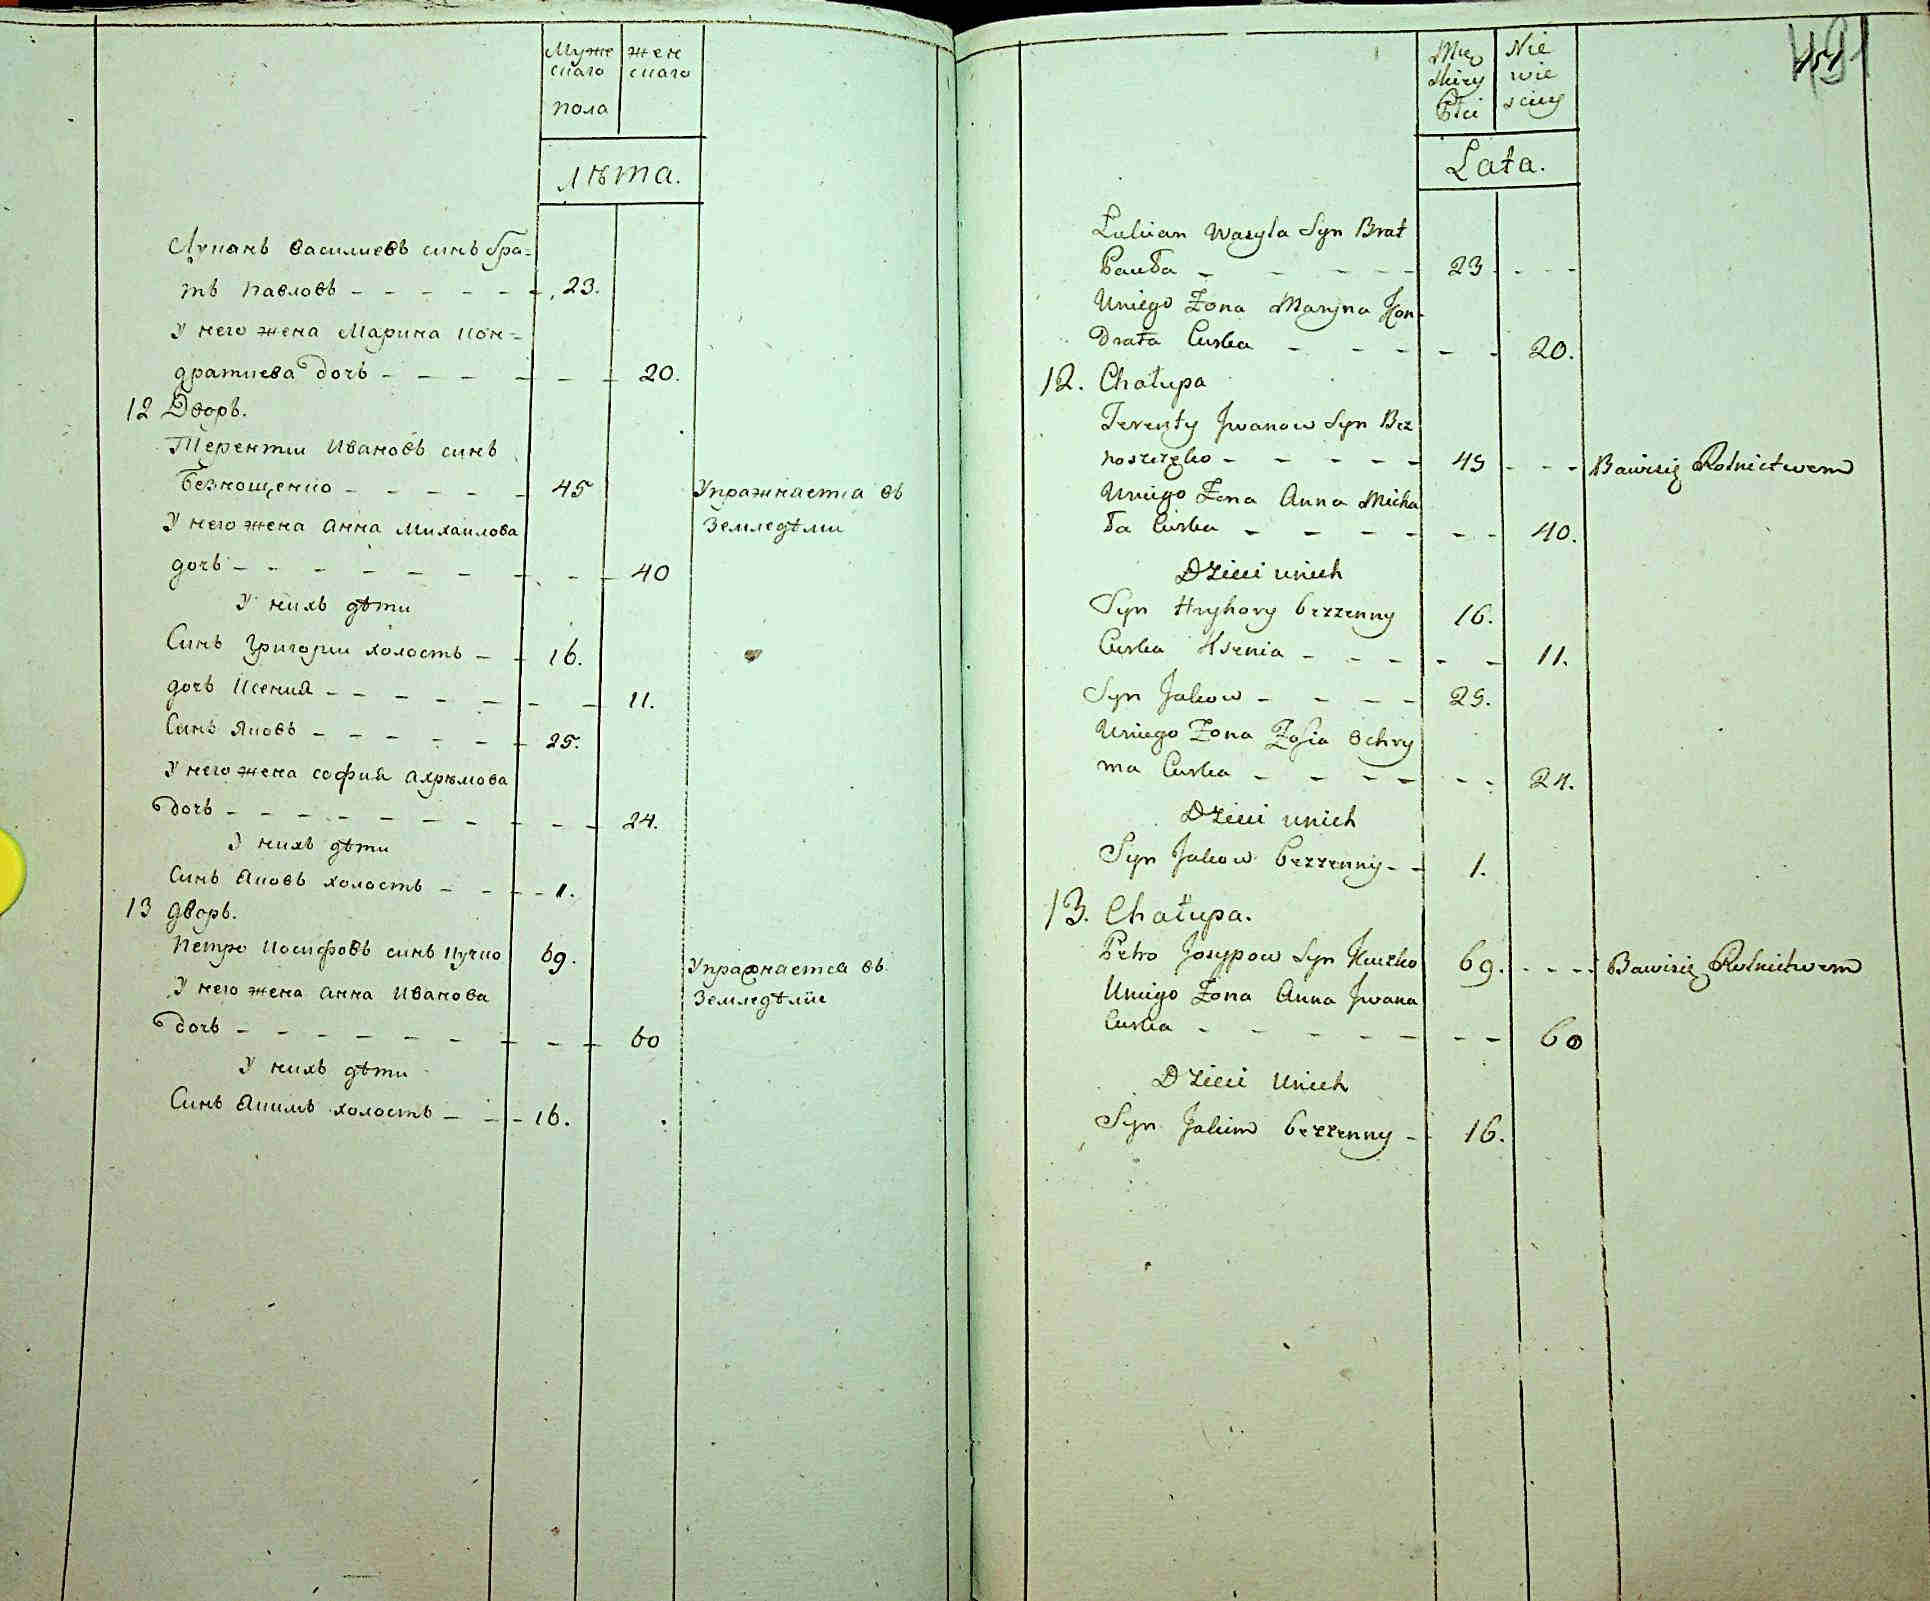 Муже
скаго
пола
жен
скаго
Лѣта.
Луканъ Василиевъ синъ бра=
тъ Павловъ - - - - - - 23.
У него жена Марина Кон=
дратиева дочь - - - - - - 20.
12 Дворъ.
Терентии Ивановъ синъ
Безнощенко - - - - - 45 Упражнаетса въ
Земледѣлии
У него жена Анна Михаилова
дочь - - - - - - - - 40
У нихъ дѣти
Синъ Григории холостъ - - 16.
дочь Ксения - - - - - - - 11.
Синъ Яковъ - - - - - - 25.
У него жена София Ахрѣмова
дочь - - - - - - - - - 24.
У нихъ дѣти
Синъ Яковъ холостъ - - - - 1.
13 дворъ.
Петро Иосифовъ синъ Кучко 69. Упражнаетса въ
Земледѣлие
У него жена Анна Иванова
дочь - - - - - - - - - 60
У нихъ дѣти
Синъ Якимъ холостъ - - - 16.
Mę
skiey
Płci
Nie
wie
sciey
Lata.
Łukian Wasyla Syn Brat
Pawła - - - - - 23 - - -
Uniego Żona Maryna Kon-
drata Curka - - - - - 20.
12. Chałupa
Terenty Jwanow Syn Bez
noszczęko - - - - - 45 - - - Bawisię Rolnictwem
Uniego Żona Anna Micha
ła Curka - - - - - - 40.
Dzieci unich
Syn Hryhory bezzenny 16.
Curka Ksenia - - - - - 11.
Syn Jakow - - - - 25.
Uniego Żona Zofia Ochry
ma Curka - - - - - - 24.
Dzieci unich
Syn Jakow bezzenny - - 1.
13. Chałupa.
Petro Jozypow Syn Kuczko 69. - - - - Bawisię Rolnictwem
Uniego Żona Anna Jwana
Curka - - - - - - - 60
Dzieci unich
Syn Jakim bezzenny - 16.